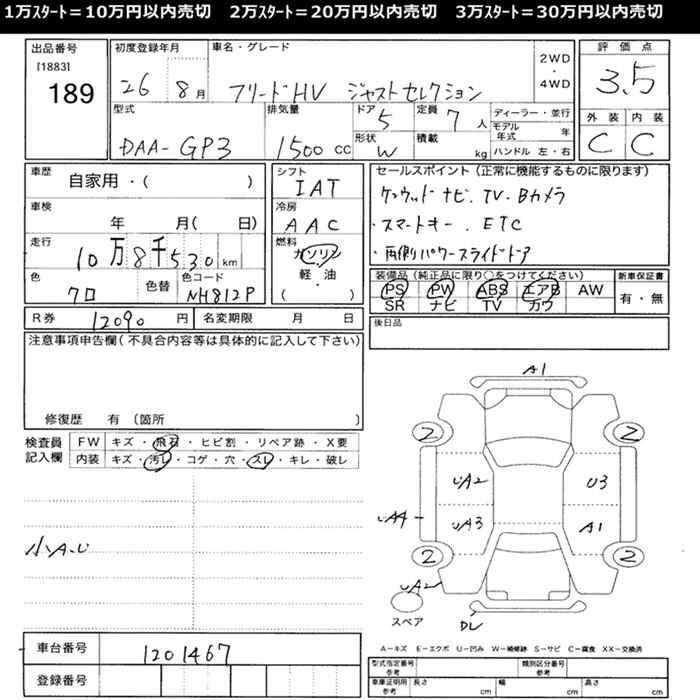 1万ｽﾀｰﾄ＝10万円以内売切　2万ｽﾀｰﾄ＝20万円以内売切　3万ｽﾀｰﾄ＝30万円以内売切
出品番号
[1883]
189
初度登録年月
26 8月
車名・グレード
フリードHV ジャストセレクション
2WD
・
4WD
評価点
3.5
型式
DAA-GP3
排気量
1500 CC
ドア
5
形状
W
定員
7人
積載
kg
ディーラー・並行
モデル年式 年
ハンドル 左・右
外装 内装
C C
車歴
自家用・( )
車検
年 月( 日)
走行
10万8千530km
色
クロ
色替
色コード
NH812P
シフト
IAT
冷房
AAC
燃料
ガソリン
軽・油
( )
セールスポイント (正常に機能するものに限ります)
ケンウッドナビ. TV. Bカメラ
・スマートキー. ETC
・両側パワースライドドア
装備品 (純正品に限り○をつけてください)
PS PW ABS エアB AW
SR ナビ TV カワ
新車保証書
有・無
R券 12090 円
名変期限 月 日
後日品
注意事項申告欄 (不具合内容等は具体的に記入して下さい)
修復歴 有 (箇所 )
検査員記入欄
FW キズ・飛石・ヒビ割・リペア跡・X要
内装 キズ・汚レ・コゲ・穴・スレ・キレ・破レ
小A.U
A1
2 2
UA2 U3
UA4
UA3 A1
2 2
UA2
スペア
車台番号 1201467
登録番号
A－キズ E－エクボ U－凹み W－補修跡 S－サビ C－腐食 XX－交換済
型式指定番号 参考
類別区分番号 参考
車庫証明用 参考
長さ cm 幅 cm 高さ cm